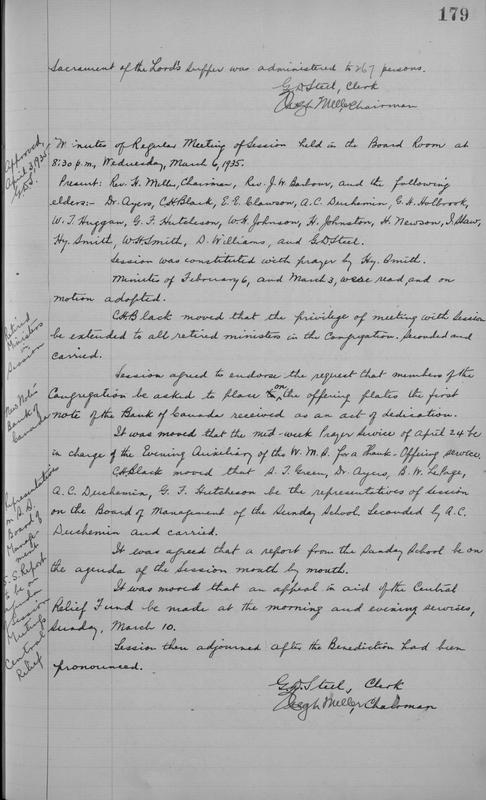 179
Sacrament of the Lord's Supper was administered to 267 persons.
G.D. Steel, Clerk
Hugh Miller, Chairman
Approved,
April 3, 1935
G.D.S.
Minutes of Regular Meeting of Session held in the Board Room at
8:30 p.m. Wednesday, March 6, 1935.
Present: Rev. H. Miller, Chairman, Rev. J.W. Barbour, and the following
elders:- Dr. Ayers, C.H. Black, E.E. Clawson, A.C. Duchemin, G.H. Holbrook,
W.T. Huggan, G.F. Hutcheson, W.H. Johnson, H. Johnston, H. Newson, I. Shaw,
Hy. Smith, W.H. Smith, D. Williams, and G.D. Steel.
Session was constituted with prayer by Hy. Smith.
Minutes of February 6, and March 3, were read, and on
motion adopted.
Retired
Ministers
in
Session
C.H. Black moved that the privilege of meeting with Session
be extended to all retired ministers in the Congregation. Seconded and
carried.
New Note
Bank of
Canada
Session agreed to endorse the request that members of the
Congregation be asked to place on the offering plates the first
note of the Bank of Canada received as an act of dedication.
It was moved that the mid-week Prayer Service of April 24 be
in charge of the Evening Auxiliary of the W.M.S. for a Thank-Offering service.
Representatives
on S.S.
Board of
Manage-
ment
C.H. Black moved that S.T. Green, Dr. Ayers, B.W. LePage,
A.C. Duchemin, G.F. Hutcheson be the representatives of session
on the Board of Management of the Sunday School. Seconded by A.C.
Duchemin and carried.
S.S. Report
to be on
agenda
of Session
Meetings
It was agreed that a report from the Sunday School be on
the agenda of the Session month by month.
Central
Relief
It was moved that an appeal in aid of the Central
Relief Fund be made at the morning and evening services,
Sunday, March 10.
Session then adjourned after the Benediction had been
pronounced.
G.D. Steel, Clerk
Hugh Miller, Chairman